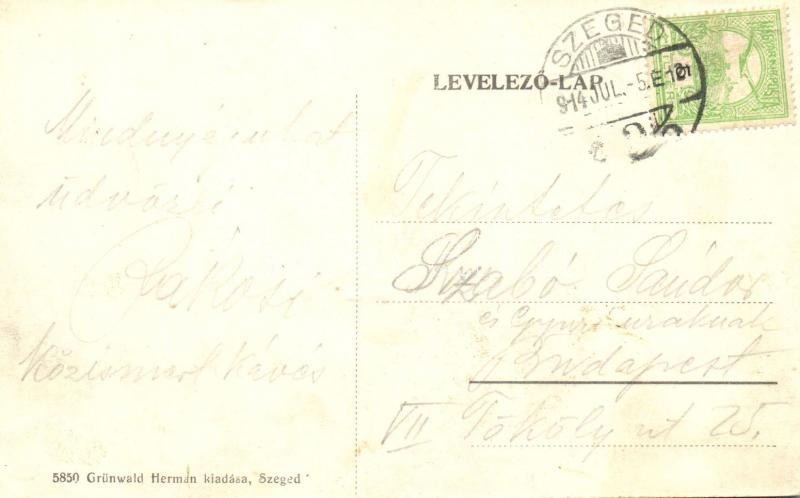 SZEGED
LEVELEZŐ-LAP
914 JUL.-5.E
Mindnyájukat
üdvözli
Rákosi
Közismert kávés
Tekintetes
Szabó Sándor
és uraknak
Budapest
VII Tököly út 25.
5850 Grünwald Hermán kiadása, Szeged